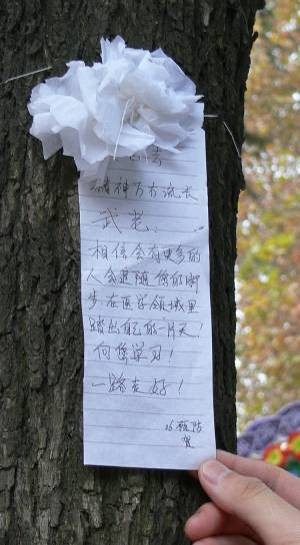 精神万古流长
武老:
相信会有更多的
人会追随您的脚
步,在医学领域里
踏出自己的一片天!
向您学习!
一路走好!
贺